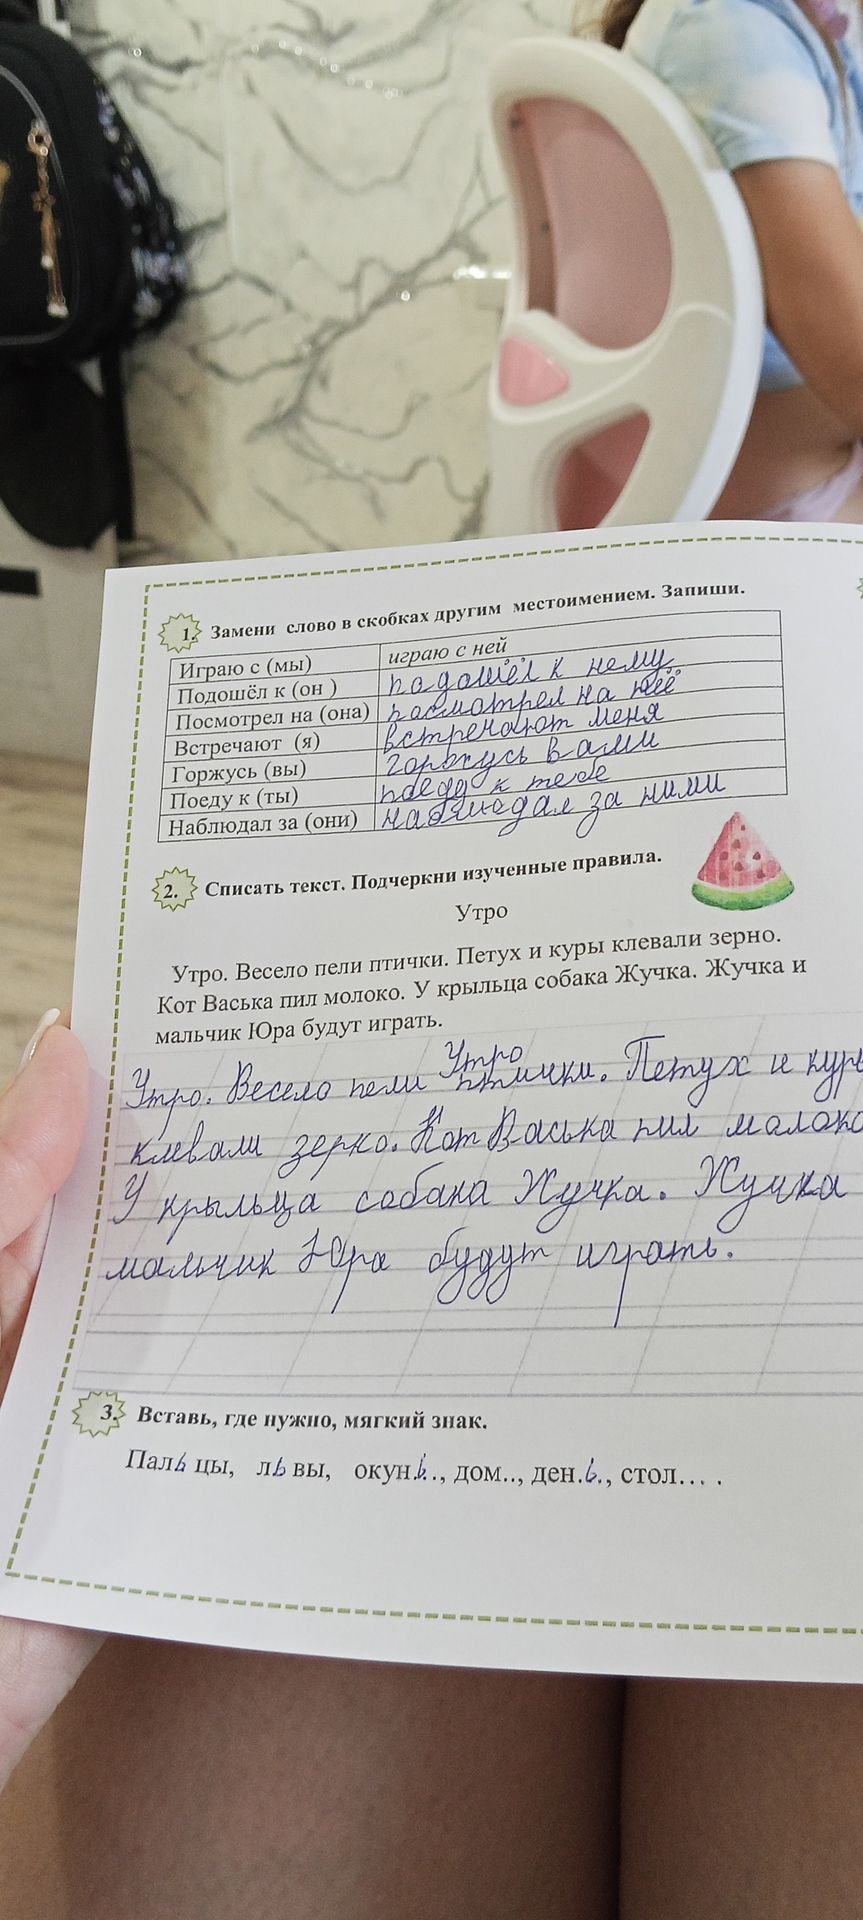 1. Замени слово в скобках другим местоимением. Запиши.
Играю с (мы) играю с ней
Подошёл к (он ) подошёл к нему
Посмотрел на (она) посмотрел на неё
Встречают (я) встречают меня
Горжусь (вы) горжусь вами
Поеду к (ты) поеду к тебе
Наблюдал за (они) наблюдал за ними
2. Списать текст. Подчеркни изученные правила.
Утро
Утро. Весело пели птички. Петух и куры клевали зерно.
Кот Васька пил молоко. У крыльца собака Жучка. Жучка и
мальчик Юра будут играть.
Утро
Утро. Весело пели птички. Петух и куры
клевали зерно. Кот Васька пил молоко
У крыльца собака Жучка. Жучка
мальчик Юра будут играть.
3. Вставь, где нужно, мягкий знак.
Паль цы, ль вы, окун.ь.., дом.., ден.ь., стол.... .